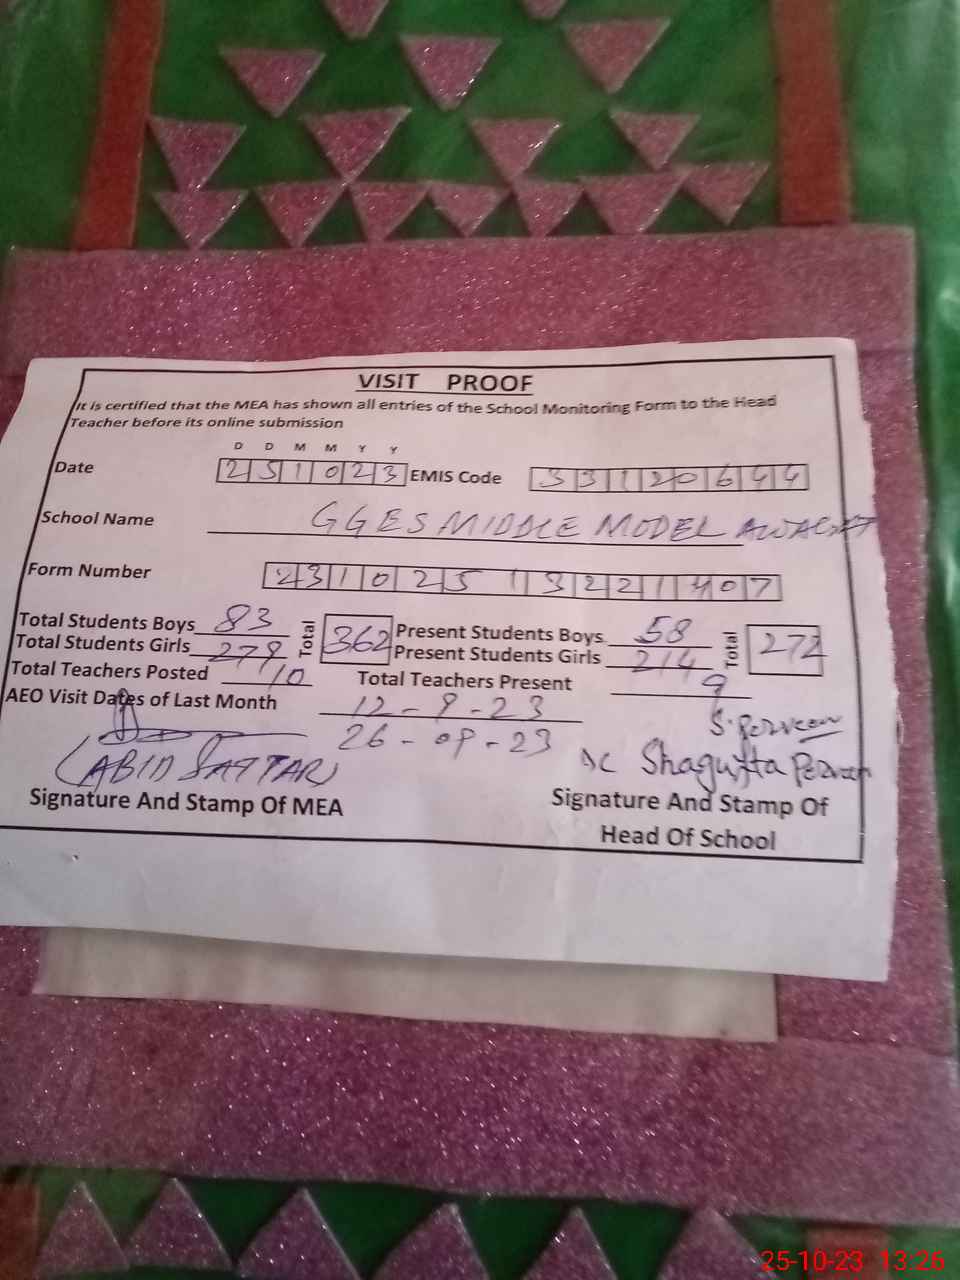 VISIT PROOF
It is certified that the MEA has shown all entries of the School Monitoring Form to the Head
Teacher before its online submission
D D M M Y Y
Date 251023 EMIS Code 33120644
School Name GGES MIDDLE MODEL
Form Number 231025 13221407
Total Students Boys 83 Total 362 Present Students Boys 58 Total 272
Total Students Girls 279 Present Students Girls 214
Total Teachers Posted 10 Total Teachers Present 9
AEO Visit Dates of Last Month 12-9-23
26-09-23
S. Perveen
(ABID SATTAR) Shagufta Perveen
Signature And Stamp Of MEA Signature And Stamp Of
Head Of School
25-10-23 13:26